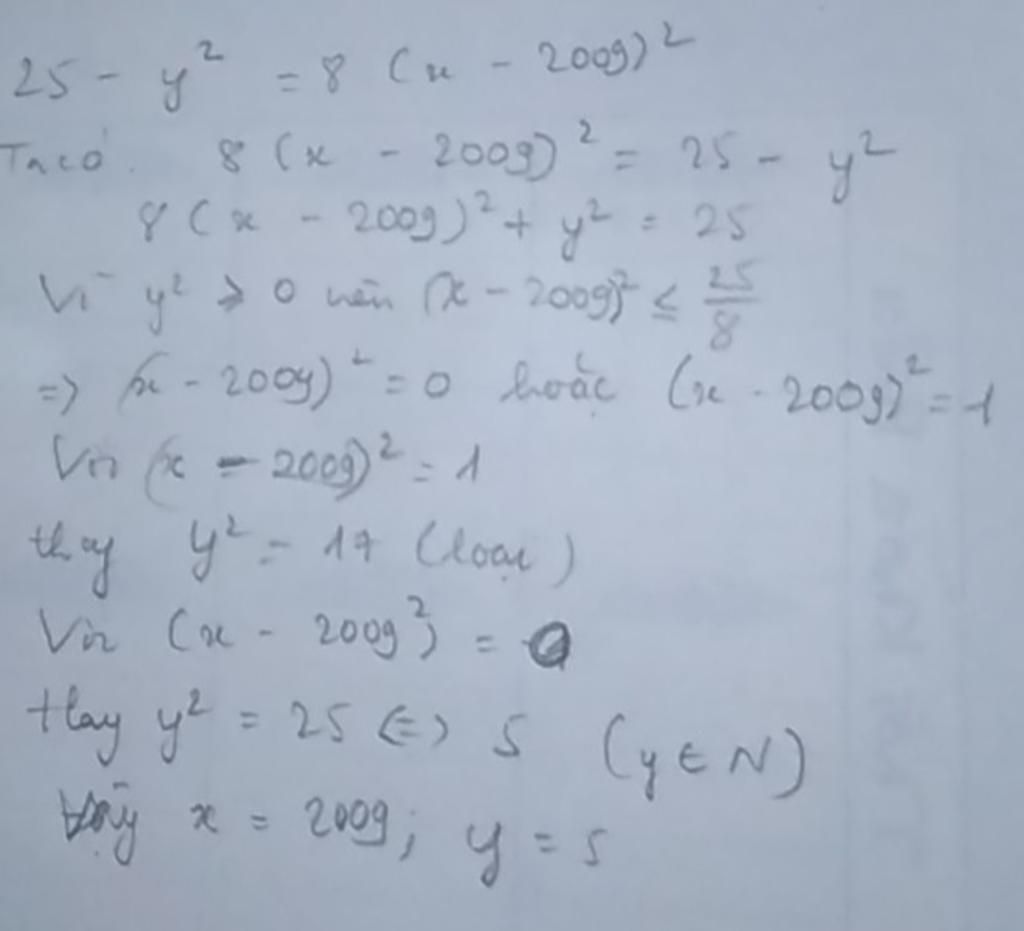 25 - y² = 8 (x - 2009)²
Ta có. 8 (x - 2009)² = 25 - y²
8 (x - 2009)² + y² = 25
Vì y² ≥ 0 nên (x - 2009)² ≤ 25/8
=> (x - 2009)² = 0 hoặc (x - 2009)² = 1
Với (x - 2009)² = 1
thay y² = 17 (loại)
Với (x - 2009)² = 0
thay y² = 25 <=> 5 (y ∈ N)
Vậy x = 2009; y = 5